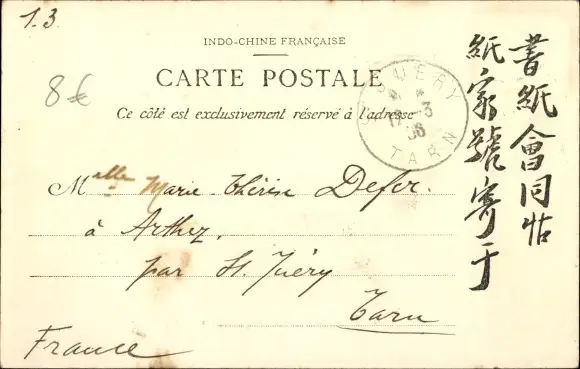 1.3
INDO-CHINE FRANÇAISE
8€
CARTE POSTALE
Ce côté est exclusivement réservé à l'adresse
JUÉRY
12 3
06
TARN
Melle Marie-Thérèse Defer.
à Arthez,
par St. Juéry
Tarn
France
書紙會同怗
紙家號寄于